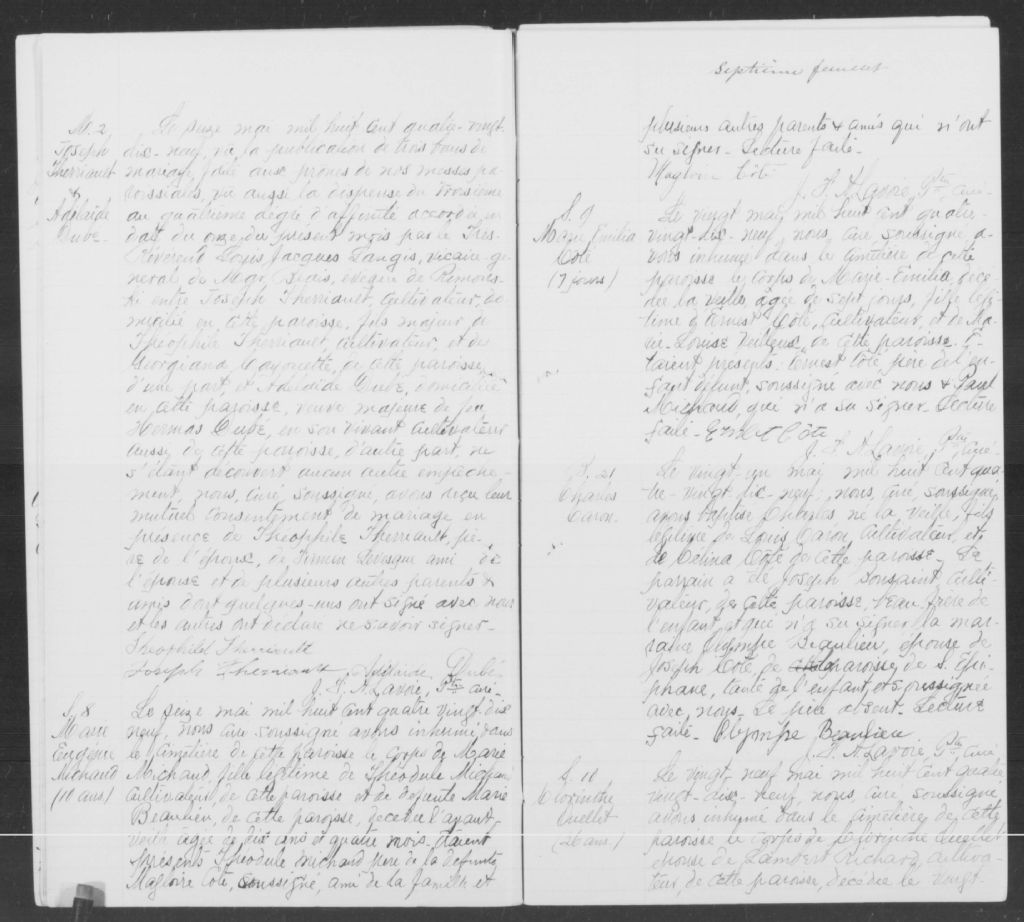 M. 2
Joseph
Therriault
&
Adélaide
Dubé
Le seize mai mil huit cent quatre-vingt
dix-neuf, vu la publication de trois bans de
mariage, faite aux prônes de nos messes pa-
roissiales, vu aussi la dispense du troisième
au quatrième degré d'affinité accordée en
date du onze du présent mois par le Très-
Révérend Louis Jacques Langis, vicaire-gé-
néral de Mgr Blais, évêque de Rimous-
ki entre Joseph Therriault, cultivateur, do-
micilié en cette paroisse, fils majeur de
Théophile Therriault, cultivateur, et de
Georgiana Cayouette, de cette paroisse,
d'une part et Adélaide Dubé, domiciliée
en cette paroisse, veuve majeure de feu
Hermas Dubé, en son vivant cultivateur
aussi de cette paroisse, d'autre part, ne
s'étant découvert aucun autre empêche-
ment, nous, curé, soussigné, avons reçu leur
mutuel consentement de mariage en
présence de Théophile Therriault, pè-
re de l'époux, de Firmin Levesque ami de
l'épouse et de plusieurs autres parents &
amis dont quelques-uns ont signé avec nous
et les autres ont déclaré ne savoir signer-
Théophile Therriault
Joseph Therriault Adélaide Dubé
J. F. A. Lavoie, Ptre curé-
S. 8
Marie
Eugénie
Michaud
(10 ans)
Le seize mai mil huit cent quatre vingt dix
neuf, nous curé soussigné avons inhumé dans
le cimetière de cette paroisse le corps de Marie
Michaud, fille légitime de Théodule Michaud
cultivateur de cette paroisse et de défunte Marie
Beaulieu, de cette paroisse, décédée l'avant
veille âgée de dix ans et quatre mois. Etaient
présents Théodule Michaud père de la défunte,
Magloire Côté, soussigné, ami de la famille et
Septième feuillet
plusieurs autres parents & amis qui n'ont
su signer- Lecture faite-
Magloire Côté
J. F. A. Lavoie, Ptre curé-
S. 9
Marie Emilia
Côté
(7 jours)
Le vingt mai mil huit cent quatre-
vingt-dix-neuf, nous, curé soussigné a-
vons inhumé dans le cimetière de cette
paroisse le corps de Marie-Emilia décé-
dée la veille âgée de sept jours, fille légi-
time d'Ernest Côté, cultivateur, et de Ma-
rie-Louise Veilleux de cette paroisse. E-
taient présents: Ernest Côté, père de l'en-
fant défunt, soussigné avec nous & Paul
Michaud, qui n'a su signer. Lecture
faite- Ernest Côté
J. F. A. Lavoie, Ptre curé-
B. 21
Charles
Caron.
Le vingt-un mai mil huit cent qua-
tre-vingt-dix-neuf; nous, curé, soussigné,
avons baptisé Charles né la veille, fils
légitime de Louis Caron, cultivateur, et
de Célina Côté de cette paroisse- Le
parrain a été Joseph cultivateur,
de cette paroisse, beau-frère de
l'enfant, et qui n'a su signer la mar-
raine Olympe Beaulieu, épouse de
Joseph Côté, de paroisse, de S. Epi-
phane, tante de l'enfant, et soussignée
avec nous- Le père absent- Lecture
faite- Olympe Beaulieu
J. F. A. Lavoie, Ptre curé
S. 10
Clorinthe
Ouellet
(26 ans.)
Le vingt-neuf mai mil huit cent quatre
vingt-dix-neuf, nous, curé, soussigné
avons inhumé dans le cimetière de cette
paroisse le corps de Clorinthe Ouellet
épouse de Lambert Richard, cultiva-
teur, de cette paroisse, décédée le vingt-